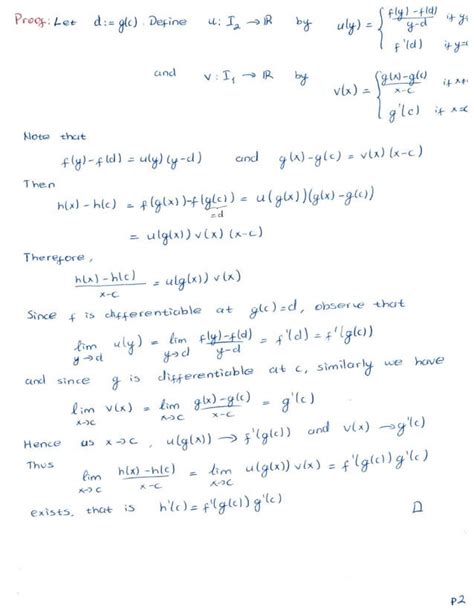 Proof: Let d := g(c). Define u: I₂ → ℝ by u(y) = { f(y)-f(d) / y-d if y
f'(d) if y=
and v: I₁ → ℝ by v(x) = { g(x)-g(c) / x-c if x≠
g'(c) if x=c
Note that
f(y)-f(d) = u(y)(y-d) and g(x)-g(c) = v(x)(x-c)
Then
h(x)-h(c) = f(g(x))-f(g(c)) = u(g(x))(g(x)-g(c))
=d
= u(g(x)) v(x) (x-c)
Therefore,
h(x)-h(c) / x-c = u(g(x)) v(x)
Since f is differentiable at g(c)=d, observe that
lim y→d u(y) = lim y→d f(y)-f(d) / y-d = f'(d) = f'(g(c))
and since g is differentiable at c, similarly we have
lim x→c v(x) = lim x→c g(x)-g(c) / x-c = g'(c)
Hence as x→c, u(g(x)) → f'(g(c)) and v(x) → g'(c)
Thus
lim x→c h(x)-h(c) / x-c = lim x→c u(g(x)) v(x) = f'(g(c)) g'(c)
exists, that is h'(c) = f'(g(c)) g'(c) □
P2